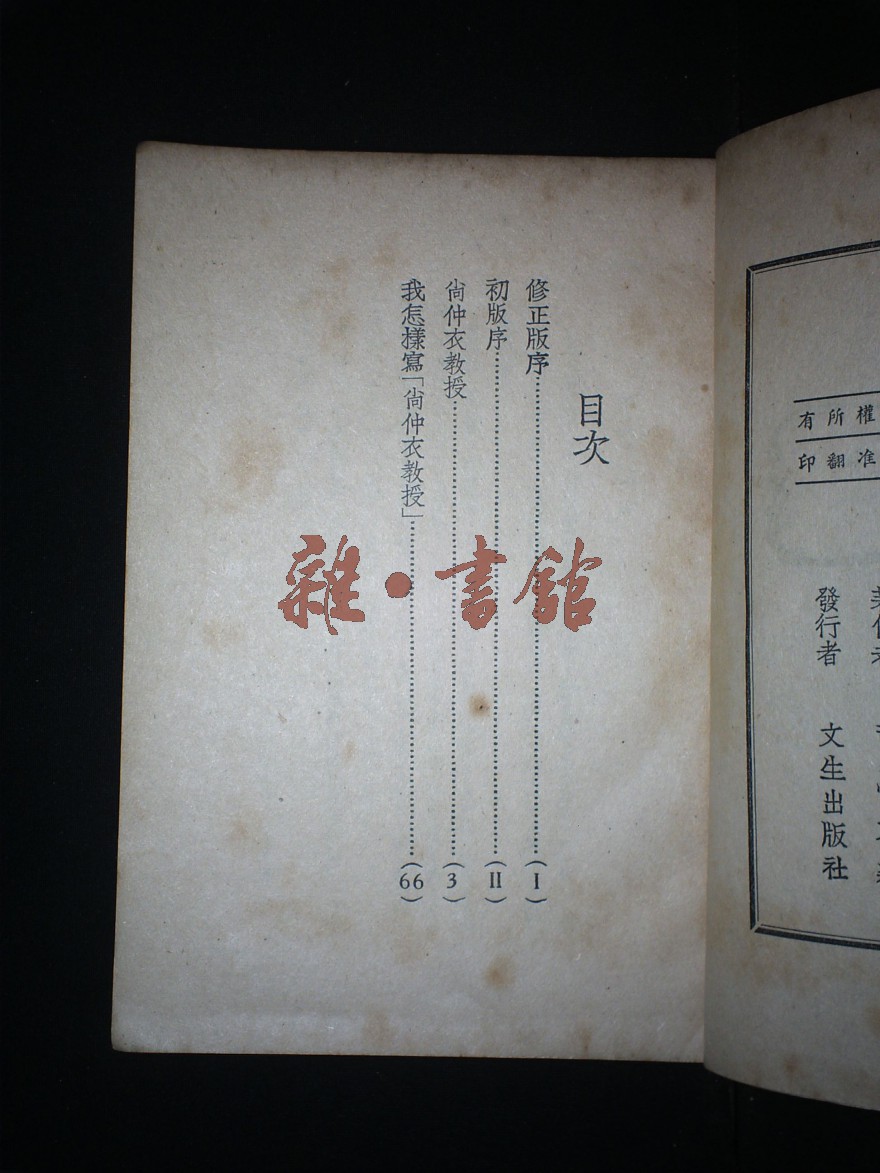 目次
修正版序(I)
初版序(II)
尙仲衣教授(3)
我怎樣寫「尙仲衣教授」(66)
有所權
印翻准
發行者 文生出版社
雜·書館